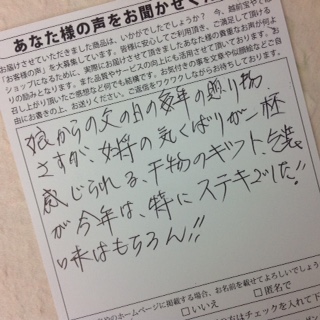 あなた様の声をお聞かせく
お届けさせていただきました商品は、いかがでしたでしょうか？　今、越前宝や
「お客様の声」を大募集しています。皆様に安心してご利用頂き、ご満足して頂ける
ショップになるために、実際にお届けさせて頂きましたあなた様の貴重なお声が何よ
りの励みとなります。また品質やサービスの向上にも活用させて頂いております。
召し上がり頂いたご感想など何でも結構です。お気付きの事を文章や似顔絵などご自
由にお書きの上、お送りください。ご返信をワクワクしながらお待ちしております。
娘からの父の日の毎年の贈り物
さすが、女将の気くばりが一杯
感じられる、干物のギフト包装
が今年は、特にステキでした!!
味はもちろん!!
やホームページに掲載する場合、お名前を載せてよろしいでしょう
□いいえ
□匿名で
方はチェックを入れて下